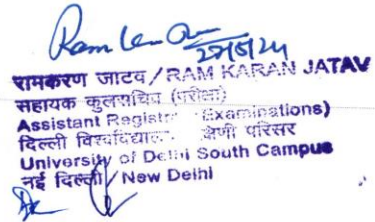 27/5/24
रामकरण जाटव / RAM KARAN JATAV
सहायक कुलसचिव (परीक्षा)
Assistant Registr Examinations)
दिल्ली विश्वविद्याल क्षिणी परिसर
University of Delhi South Campus
नई दिल्ली / New Delhi